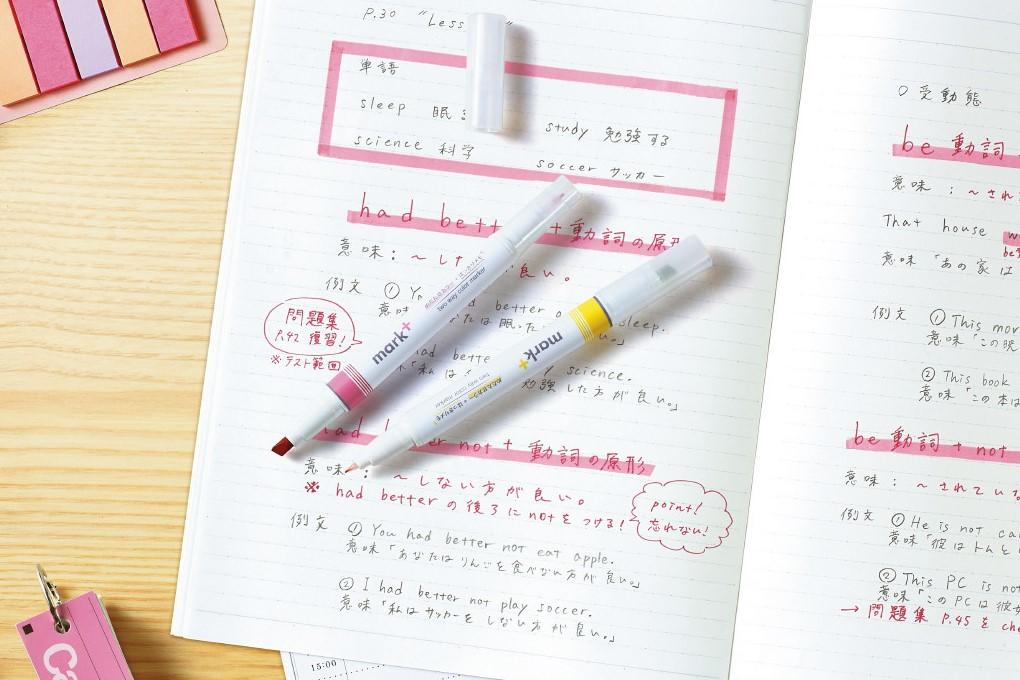 P.30 "Less
単語
sleep 眠
study 勉強する
science 科学
soccer サッカー
had bett + 動詞の原形
意味: ～した 良い。
例文 ① Yo had better sleep.
意味 なたは眠った い。」
問題集
P.42 復習!
※テスト範囲
had bette science.
「私は 勉強した方が良い。」
mark+
two way color marker
mark+
two way color marker
had better not + 動詞の原形
意味: ～しない方が良い。
※ had better の後ろに notをつける!
point!
忘れない!
例文 ① You had better not eat apple.
意味「あなたはりんごを食べない方が良い。」
② I had better not play soccer.
意味「私はサッカーをしない方が良い。」
15:00
○受動態
be 動詞
意味: ～され
That house
意味「あの家は
例文 ① This mor
意味「この
② This book
意味「この本は
be 動詞 + not
意味: ～されていな
例文 ① He is not cal
意味「彼はトムと
② This PC is not
意味「このPCは彼女
→ 問題集 P.45 を che